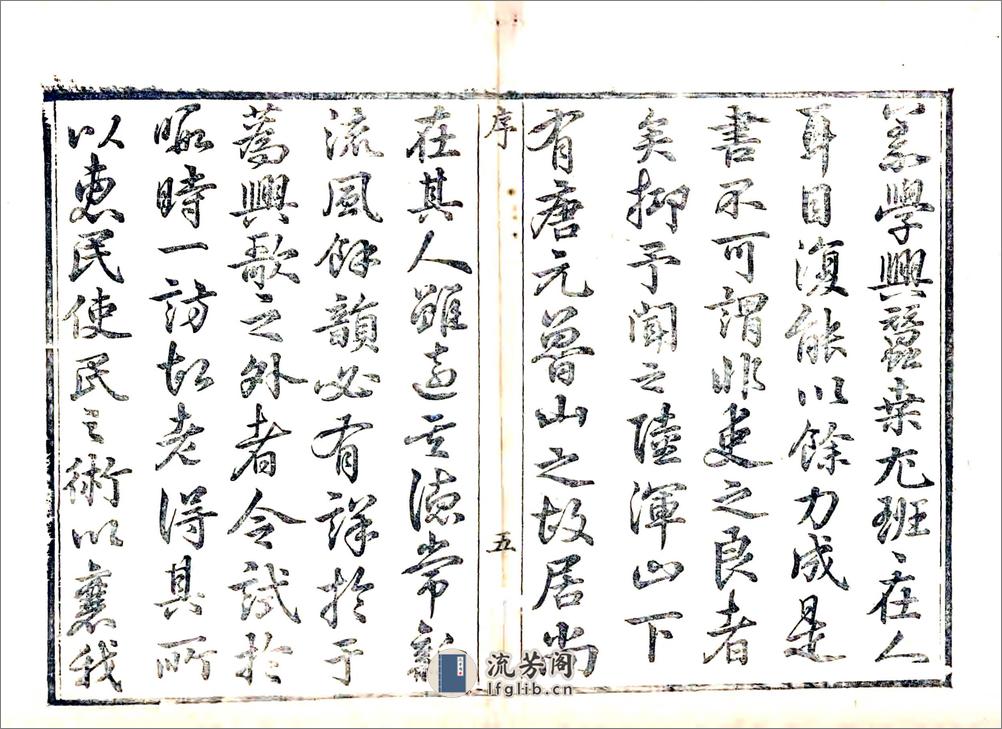 義學興蠶桑尤班〻在人
耳目復能以餘力成是
書不可謂非吏之良者
矣抑予聞之陸渾山下
有唐元魯山之故居尚
序 五
在其人雖遠其德常新
流風餘韻必有詳於于
蒍興歌之外者令試於
暇時一訪故老得其所
以惠民使民之術以襄我
流芳阁
lfglib.cn